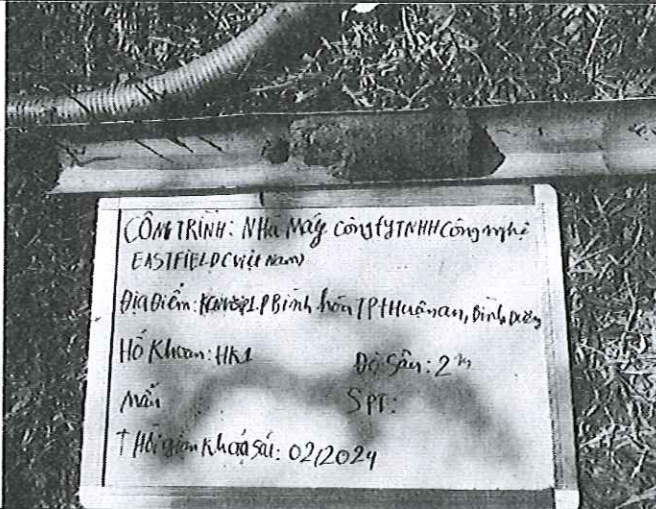 CÔNG TRÌNH: NHà Máy công ty TNHH Công nghệ
EASTFIELD (việt Nam)
Địa Điểm: KCN VSIP1. P Bình hòa TP tHuận an, Bình Dương
Hố Khoan: HK1 Độ Sâu: 2m
Mẫu SPT:
Thời gian Khảo sát: 02/2024